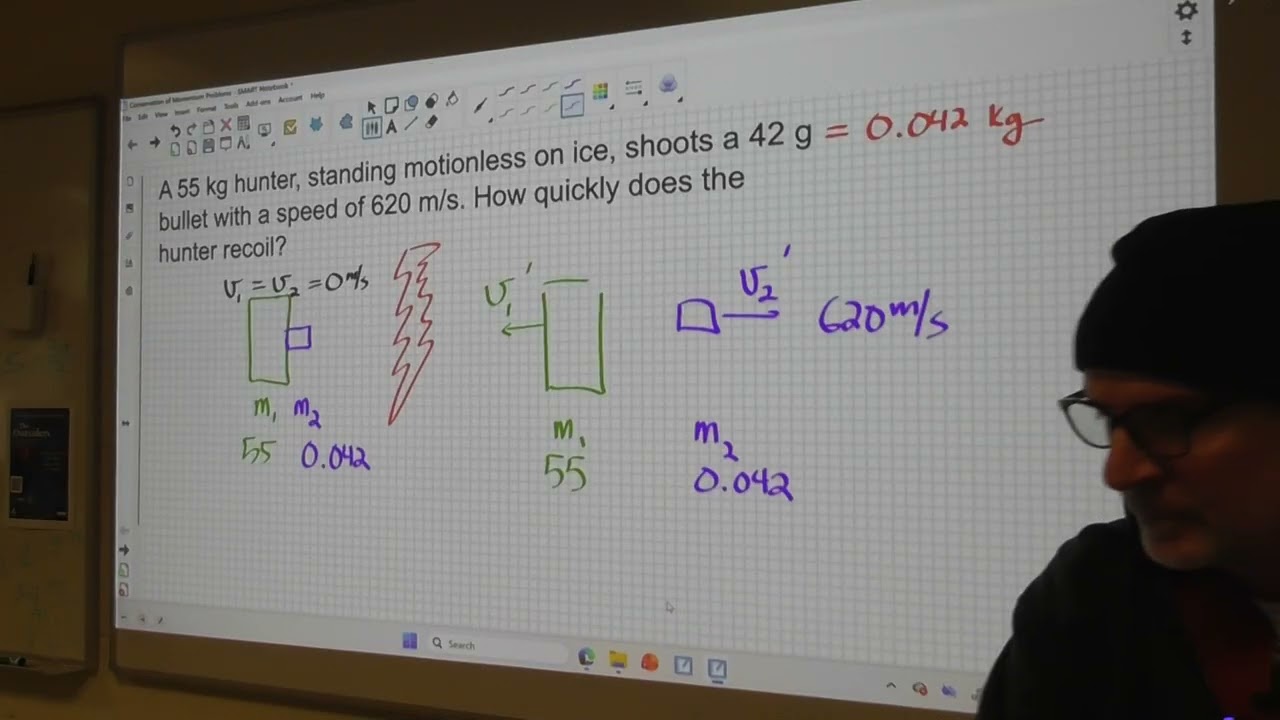 Conservation of Momentum Problems - SMART Notebook
File Edit View Insert Format Tools Add-ons Account Help
A 55 kg hunter, standing motionless on ice, shoots a 42 g = 0.042 kg
bullet with a speed of 620 m/s. How quickly does the
hunter recoil?
v₁ = v₂ = 0 m/s
v₁'
v₂'
620 m/s
m₁ m₂
55 0.042
m₁
55
m₂
0.042
Search